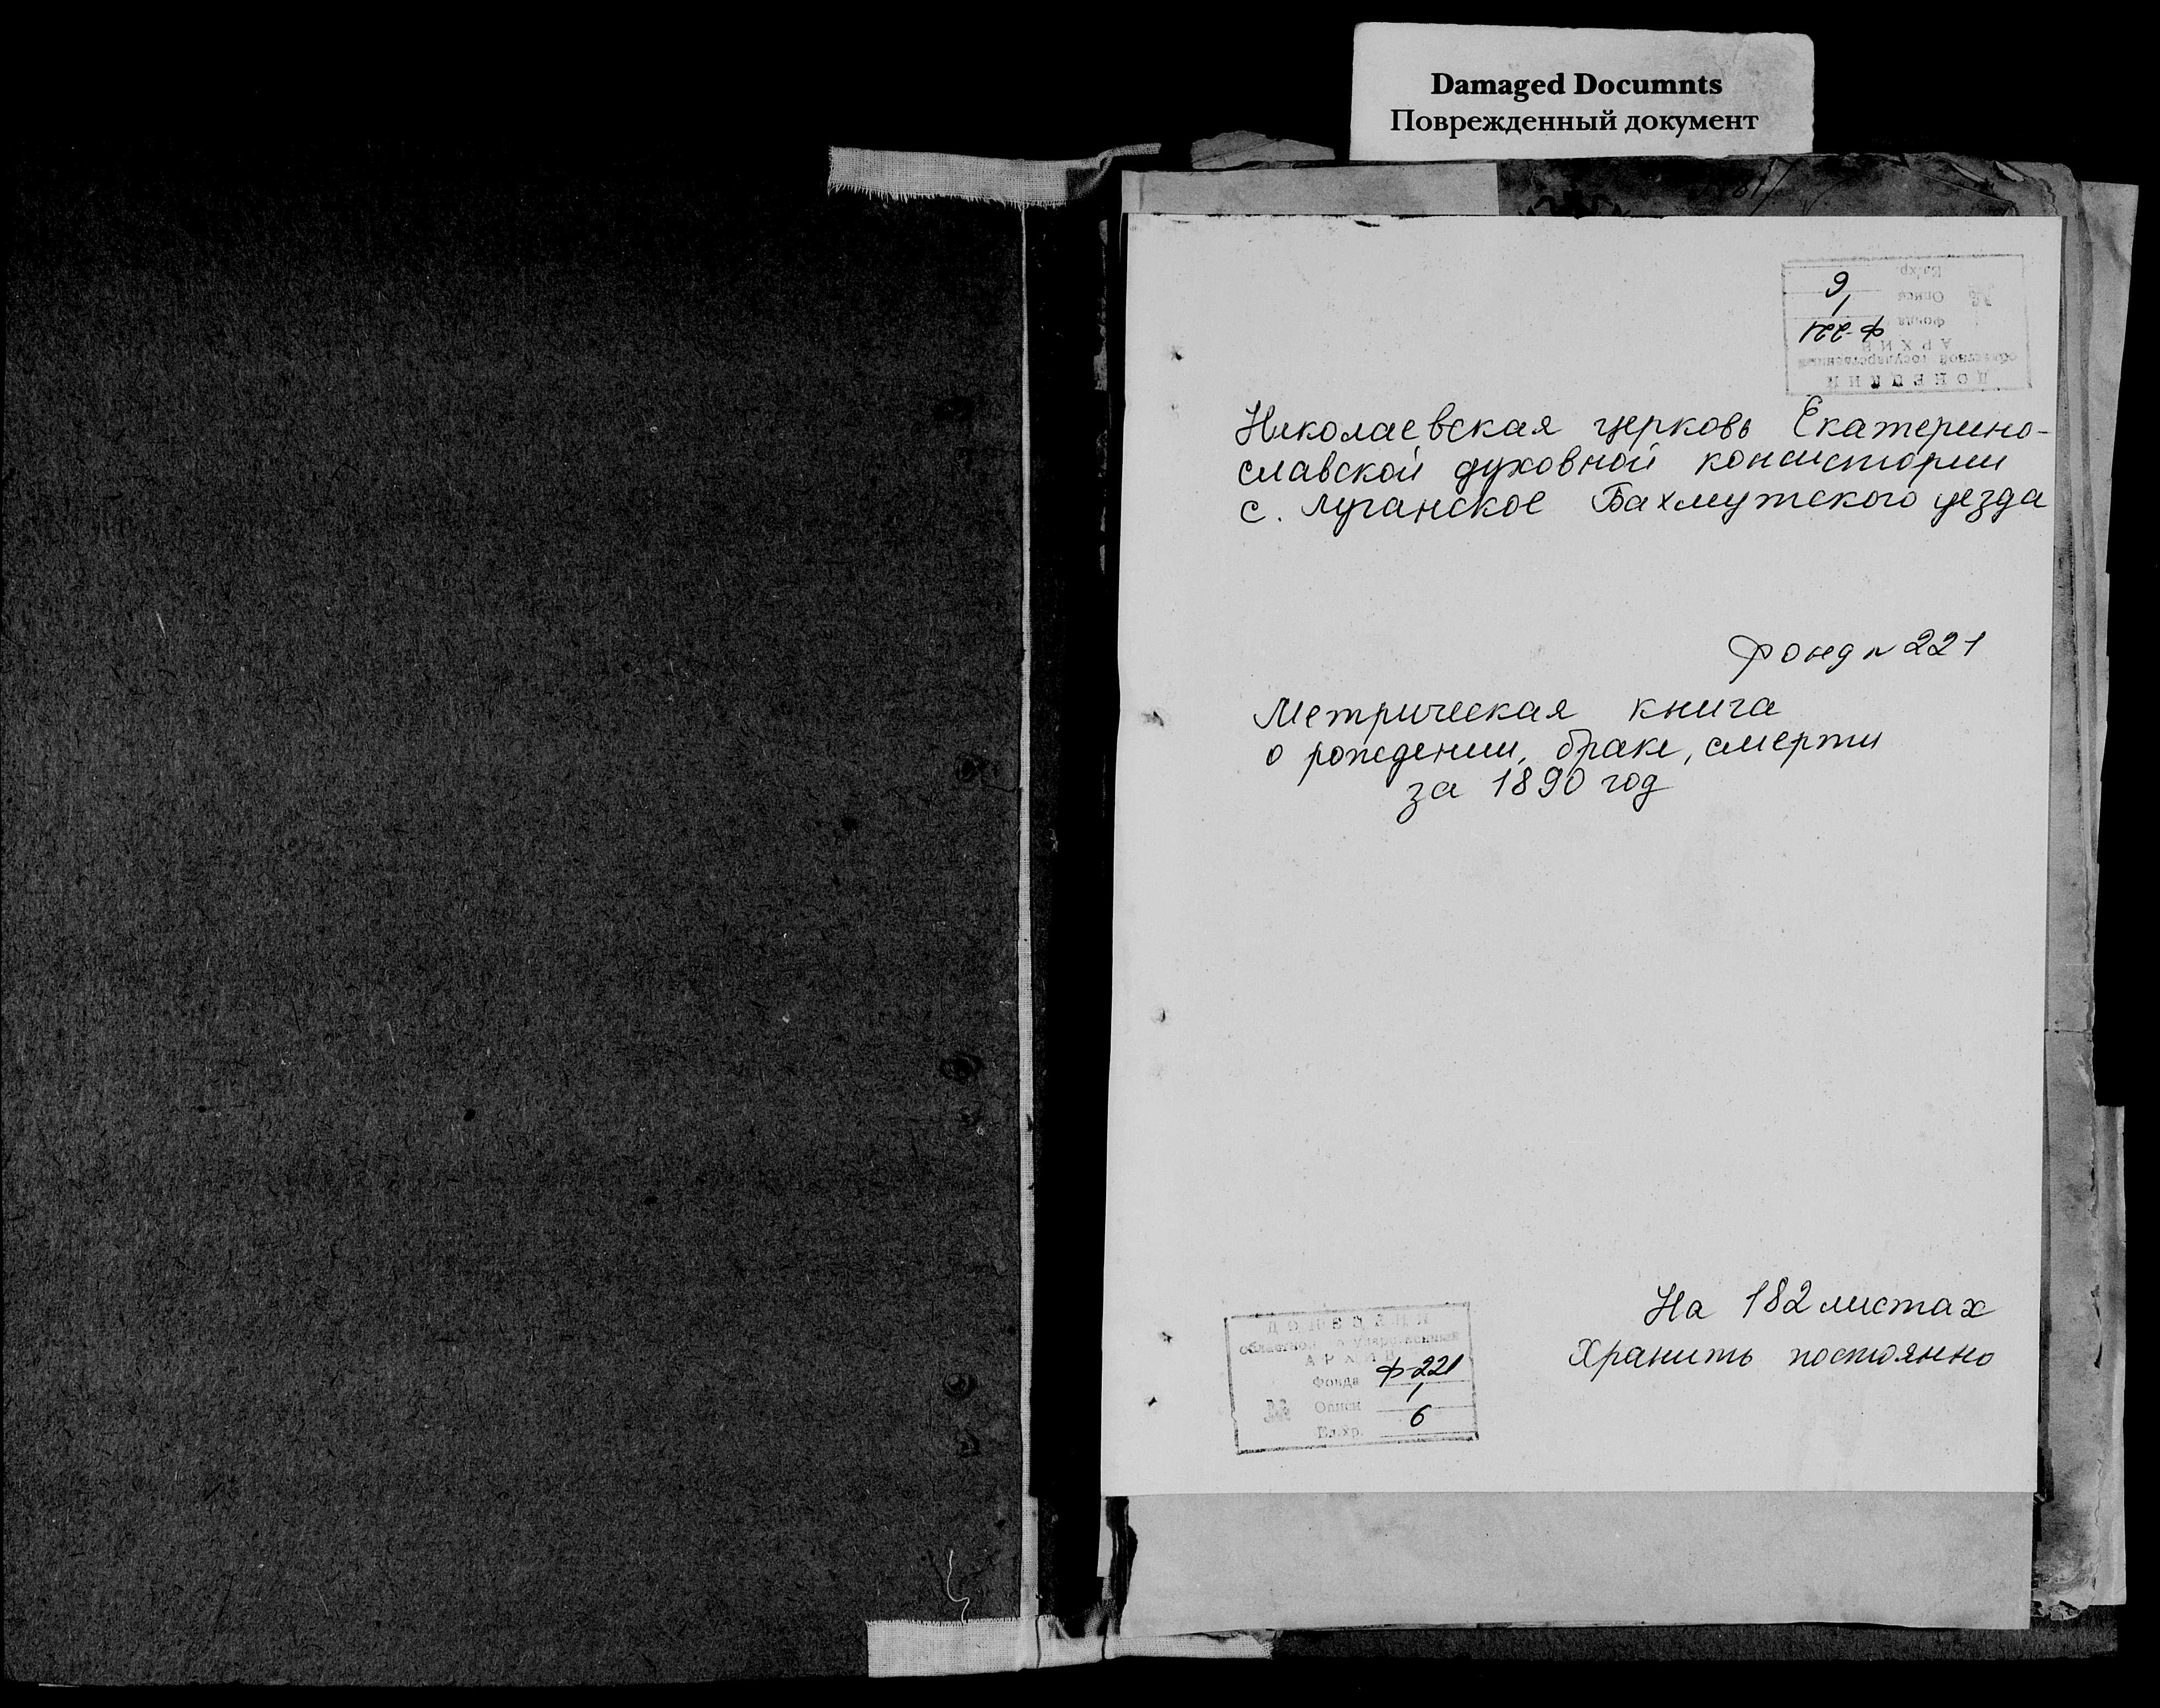 Damaged Documnts
Поврежденный документ
ДОНЕЦКИЙ
областной государственный
АРХИВ
Фонда Ф-221
№ Описи 1
Ед.хр. 6
Николаевская церковь Екатерино-
славской духовной консистории
с. Луганское Бахмутского уезда
Фонд N 221
Метрическая книга
о рождении, браке, смерти
за 1890 год
На 182 листах
Хранить постоянно
ДОНЕЦКИЙ
областной государственный
АРХИВ
Фонда Ф-221
№ Описи 1
Ед.хр. 6